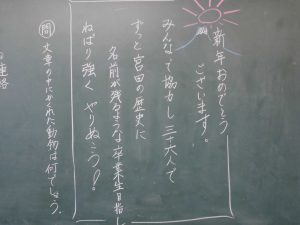 新年おめでとう
ございます。
みんなで協力し三十六人で
ずっと宮田の歴史に
名前が残るような卒業生目指し
ねばり強くやりぬこう!
問 文章の中にかくれた動物は何でしょう.